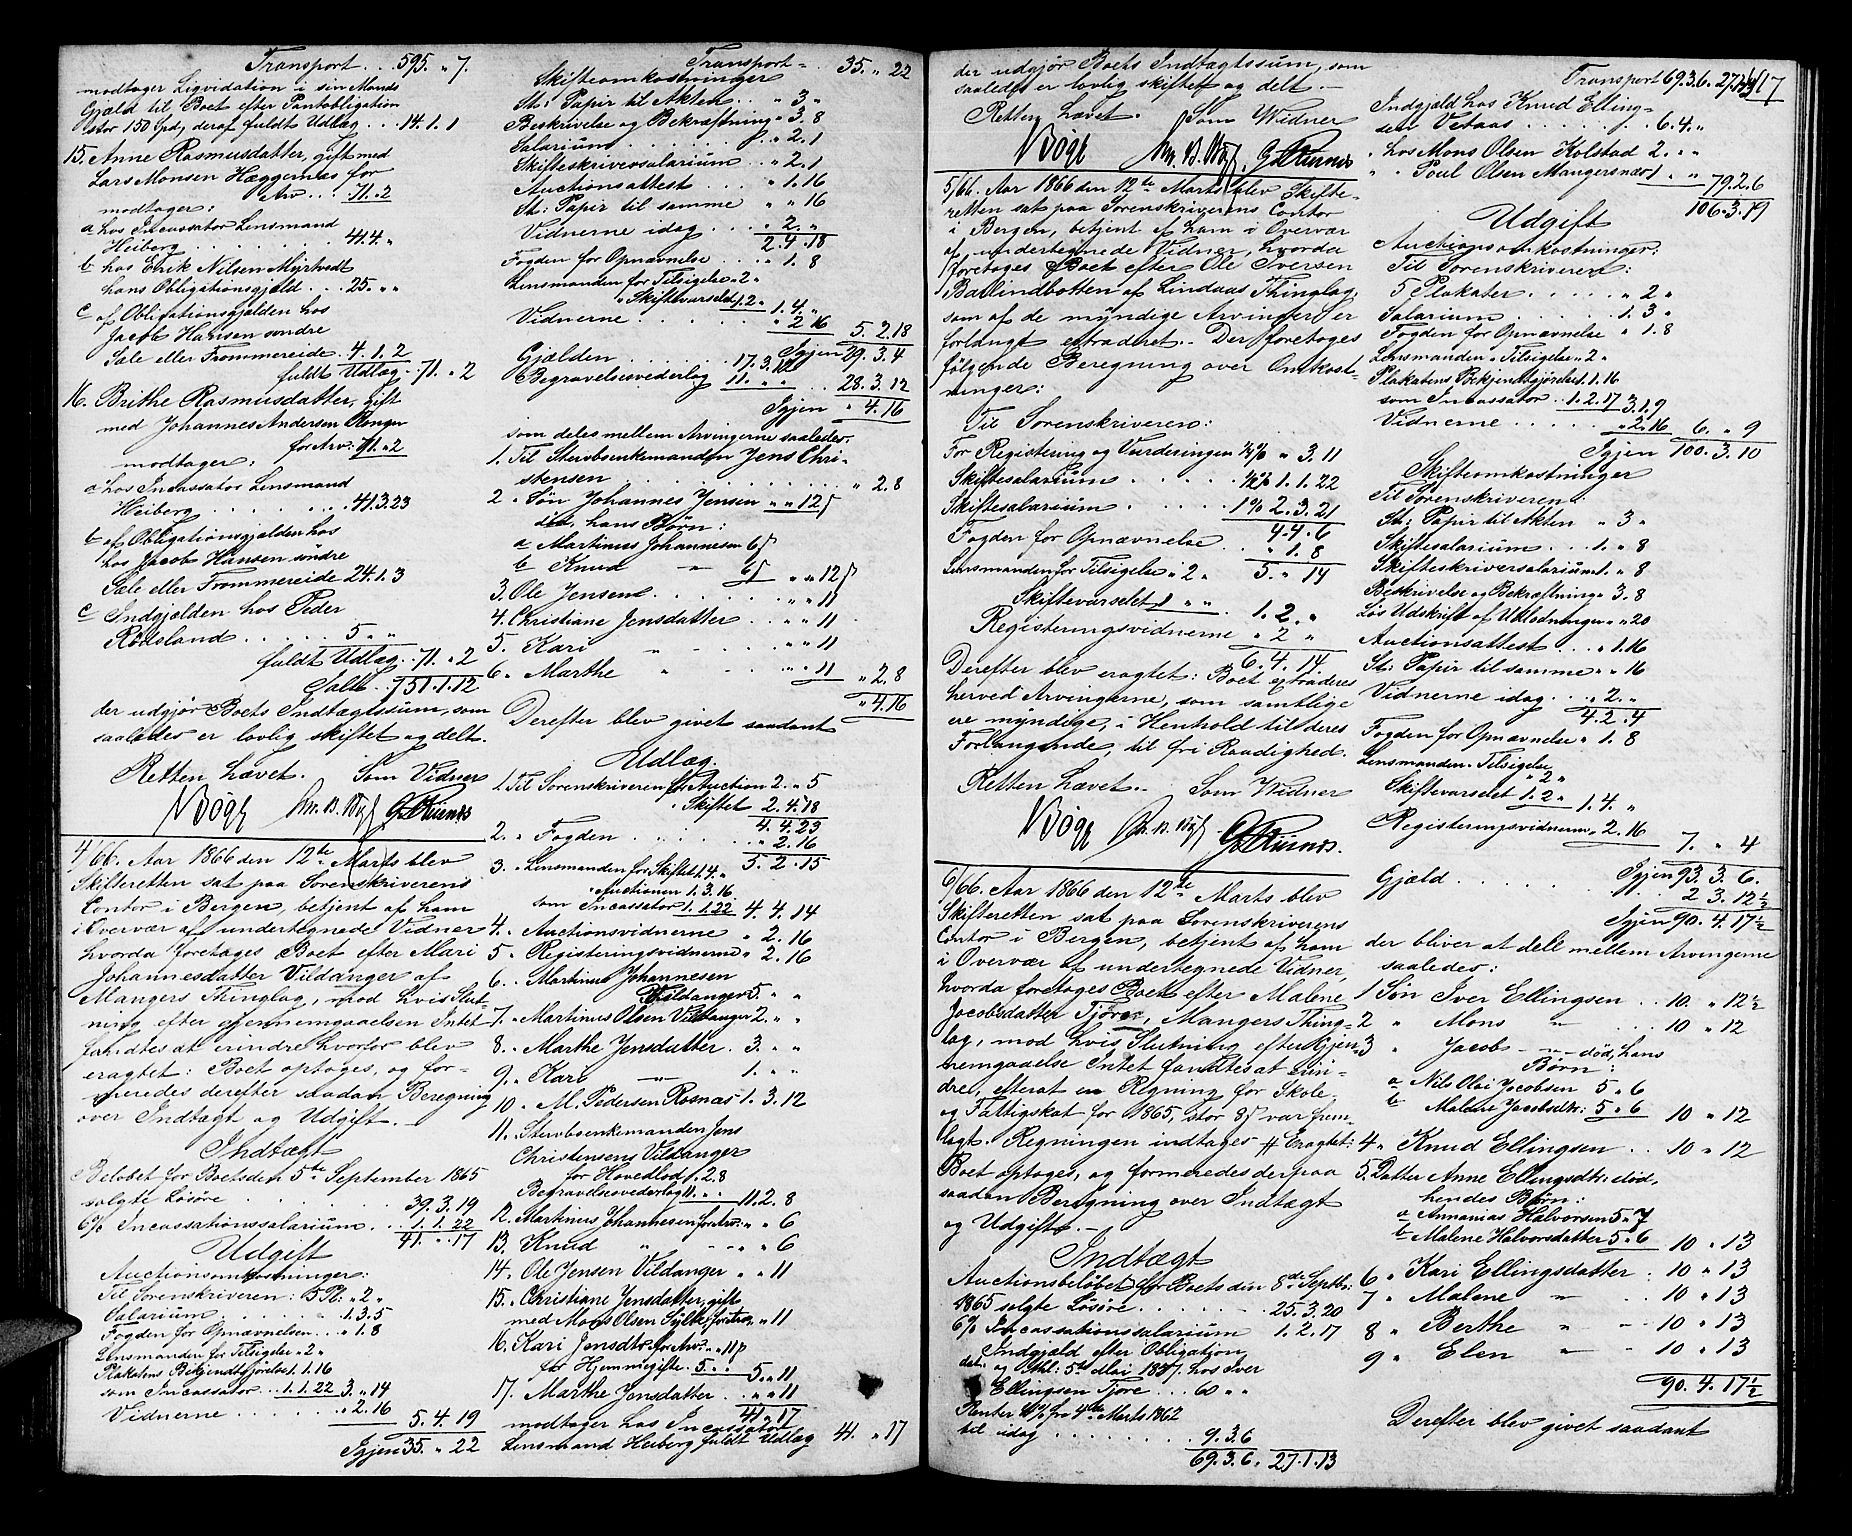 Transport . . 595. " 7.
modtager Liqvidation i sin Mands
Gjæld til Boet efter Pantobligation
stor 150 Spd, deraf fuldt Udlæg . . . 14. 1. 1
15. Anne Rasmusdatter, gift med
Lars Monsen Hæggernæs for
Arv . . . 71. " 2
modtager:
a hos Incassator Lensmand
Heiberg . . . . . . . . 41. 4. "
b hos Erik Nilsen Myrtvedt
hans Obligationsgjæld . . . 25. " "
c af Obligationsgjælden hos
Jacob Hansen søndre
Sæle eller Frommereide . 4. 1. 2
fuldt Udlæg . 71. " 2
16. Brithe Rasmusdatter, gift
med Johannes Andersen
for Arv: 71. " 2
modtager:
a hos Incassator Lensmand
Heiberg . . . . . . . 41. 3. 23
b af Obligationsgjælden hos
hos Jacob Hansen søndre
Sæle eller Frommereide 24. 1. 3
c Indgjælden hos Peder
Rødsland . . . . . 5. " "
fuldt Udlæg . 71. " 2
Salt . 751. 1. 12
der udgjør Boets Indtægtssum, som
saaledes er lovlig skiftet og delt.
Retten hævet. Som Vidner
Bøgh
4/66. Aar 1866 den 12te Marts blev
Skifteretten sat paa Sorenskriverens
Contor i Bergen, betjent af ham
i Overvær af undertegnede Vidner
hvorda foretoges Boet efter Mari
Johannesdatter Vildanger af
Mangers Thinglag, mod hvis Slut-
ning efter Gjennemgaaelsen Intet
fandtes at erindre hvorfor blev
eragtet: Boet optages, og for-
meredes derefter saadan Beregning
over Indtægt og Udgift. —
Indtægt
Beløbet for Boets den 5te September 1865
solgte Løsøre . . . . . . 39. 3. 19
6% Incassationssalarium . . 1. 1. 22
41. " 17
Udgift
Auctionsomkostninger:
Til Sorenskriveren: 5 Pl: " 2 "
Salarium . . . . . . . 1. 3. 5
Fogden for Opnævnelsen . . " 1. 8
Lensmanden for Tilsigelse " 2 "
Plakatens Bekjendtgjørelse 1. 1. 16
som Incassator . . 1. 1. 22 3. " 14
Vidnerne . . . . . . " 2. 16
5. 4. 19
Igjen 35. " 22
Transport . . 35. " 22
Skifteomkostninger
St: Papir til Akten . . " 3 "
Beskrivelse og Bekræftning " 3. 8
Salarium . . . . . . . " 2. 1
Skifteskriversalarium . . . " 2. 1
Auctionsattest . . . " 1. 16
St: Papir til samme " " 16
Vidnerne idag . . . " 2. "
2. 4. 18
Fogden for Opnævnelse . . " 1. 8
Lensmanden for Tilsigelse " 2 "
" Skiftevarselet 1. 2 " 1. 4. "
Vidnerne . . . . . . " 2 16 5. 2. 18
Igjen 29. 3. 4
Gjælden . . . . . . 17. 3. 12
Begravelsesvederlag 11. " " . . 28. 3. 12
Igjen " 4. 16
som deles mellem Arvingerne saaledes:
1. Til Stervboenkemanden Jens Chri-
stensen . . . . . . . . . . " 2. 8
2 " Søn Johannes Jensen " " 12ẞ
død, hans Børn:
a Martinus Johannesen 6ẞ
b Knud " 6ẞ " " 12ẞ
3. Ole Jensen . . . . . " " 11
4. Christiane Jensdatter . . . " " 11
5. Kari " - . . " " 11
6. Marthe " - . . " " 11 " 2. 8
" 4. 16
Derefter blev givet saadant
Udlæg.
1. Til Sorenskriveren for Auction 2. " 5
" Skiftet 2. 4. 18
4. 4. 23
2. " Fogden . . . . . . " 2. 16
5. 2. 15
3. " Lensmanden for Skiftet 1. 4. "
" Auctionen 1. 3. 16
som Incassator 1. 1. 22 4. 4. 14
4. " Auctionsvidnerne . " 2. 16
5 " Registeringsvidnerne " 2. 16
6. " Martinus Johannesen
Vildanger 5. " "
7. " Martinus Olsen Vildanger 2. " "
8. " Marthe Jensdatter . 3. " "
9. " Kari — 1. " "
10 " M. Pedersen Rosnæs 1. 3. 12
11. " Stervboenkemanden Jens
Christensens Vildanger
for Hovedlod " 2. 8
Begravelsesvederlag 11. " " 11. 2. 8
12. " Martinus Johannesen for Arv: " " 6
13. " Knud " - - " " 6
14. " Ole Jensen Vildanger " " 11
15. " Christiane Jensdatter, gift
med Mons Olsen Sylte, for Arv " " 11
16. " Kari Jensdtr for Arv: " " 11ẞ
for Hjemmegifte . 5. " " 5. " 11
17. " Marthe Jensdatter . . " " 11
41. " 17
modtager hos Incassator
Lensmand Heiberg fuldt Udlæg 41. " 17
der udgjør Boets Indtægtssum, som
saaledes er lovlig skiftet og delt. —
Retten hævet. Som Vidner
Bøgh
5/66. Aar 1866 den 12te Marts blev Skifte-
retten sat paa Sorenskriverens Contor
i Bergen, betjent af ham i Overvær
af undertegnede Vidner, hvorda
foretoges Boet efter Ole Iversen
Ballindbotten af Lindaas Thinglag,
som af de myndige Arvinger er
forlangt extraderet. — Der foretoges
følgende Beregning over Omkost-
ninger:
Til Sorenskriveren:
For Registering og Vurderingen 1/4% " 3. 11
Skiftesalarium . . . . . 1/2% 1. 1. 22
Skiftesalarium . . . . . 1% 2. 3. 21
4. 4. 6
Fogden for Opnævnelse . . " 1. 8
Lensmanden for Tilsigelse " 2 " 5. " 14
Skiftevarselet 1 " " 1. 2. "
Registeringsvidnerne " 2 "
6. 4. 14
Derefter blev eragtet: Boet extraderes
herved Arvingerne, som samtlige
ere myndige, i Henhold til deres
Forlangende, til fri Raadighed.
Retten hævet. Som Vidner
Bøgh
6/66. Aar 1866 den 12te Marts blev
Skifteretten sat paa Sorenskriverens
Contor i Bergen, betjent af ham
i Overvær af undertegnede Vidner,
hvorda foretoges Boet efter Malene
Jacobsdatter Tjøre, Mangers Thing-
lag, mod hvis Slutning efter Gjen-
nemgaaelse Intet fandtes at erin-
dre, efterat en Regning for Skole
og Fattigskat for 1865, stor 8ẞ var frem-
lagt. Regningen indtages # Eragtet:
Boet optages, og formeredes derpaa
saadan Beregning over Indtægt
og Udgift. —
Indtægt
Auctionsbeløbet for Boets den 8de Septb:
1865 solgte Løsøre . . . . . . 25. 3. 20
6% Incassationssalarium 1. 2. 17
Indgjæld efter Obligation
dat: og thl: 5te Mai 1837. hos Iver
Ellingsen Tjøre . . . 60 " "
Renter 4% fra 4de Marts 1862
til idag . . . . . . . 9. 3. 6
69. 3. 6. 27. 1. 13
Transport 69. 3. 6. 27. 1. 13
17
Indgjæld hos Knud Elling-
sen Vetaas . . . . . 6. 4. "
" hos Mons Olsen Kolstad 2. " "
" " Poul Olsen Mangersnæs 1 " " 79. 2. 6
106. 3. 19
Udgift
Auctionsomkostninger:
Til Sorenskriveren:
5 Plakater . . . . . " 2 "
Salarium . . . . . . 1. 3 "
Fogden for Opnævnelse " 1. 8
Lensmanden " Tilsigelse " 2 "
Plakatens Bekjendtgjørelse 1. 1. 16
som Incassator . . 1. 2. 17 3. 1. 9
Vidnerne . . . . . . " 2. 16 6. " 9
Igjen 100. 3. 10
Skifteomkostninger
Til Sorenskriveren:
St: Papir til Akten " 3 "
Skiftesalarium . . . 1. " 8
Skifteskriversalarium 1. " 8
Beskrivelse og Bekræftning " 3. 8
Løs Udskrift af Udlodningen " " 20
Auctionsattest . . . " 1. 16
St: Papir til samme " " 16
Vidnerne idag . . . " 2. "
4. 2. 4
Fogden for Opnævnelse " 1. 8
Lensmanden " Tilsigelse
" 2 "
Skiftevarselet 1. 2 " 1. 4. "
Registeringsvidnerne " 2. 16
7. " 4
Igjen 93. 3. 6.
Gjæld . . . . . . . . 2 3. 12½
Igjen 90. 4. 17½
der bliver at dele mellem Arvingerne
saaledes:
1 Søn Iver Ellingsen . . 10. " 12½
2 " Mons — . . . 10 " 12
3 " Jacob — død, hans
Børn:
a Nils Olai Jacobsen 5 " 6
b Malene Jacobsdtr: 5 " 6 10 " 12
4 " Knud Ellingsen . . 10 " 12
5. Datter Anne Ellingsdtr: død,
hendes Børn:
a Annanias Halvorsen 5 " 7
b Malene Halvorsdatter 5. 6 10 " 13
6 " Kari Ellingsdatter : 10 " 13
7 " Malene — " — 10 " 13
8 " Berthe " - 10 " 13
9 " Elen " — 10 " 13
90. 4. 17½
Derefter blev givet saadant